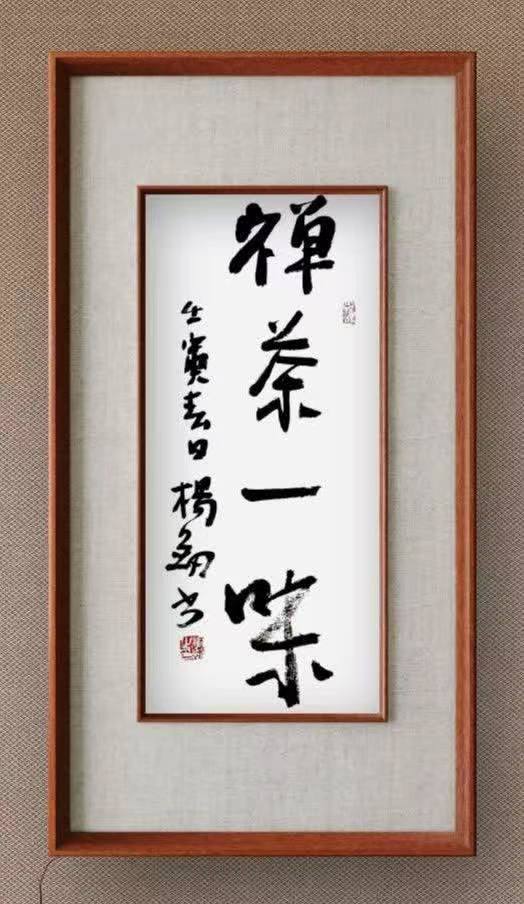 禅茶一味
壬寅春日 楊 书